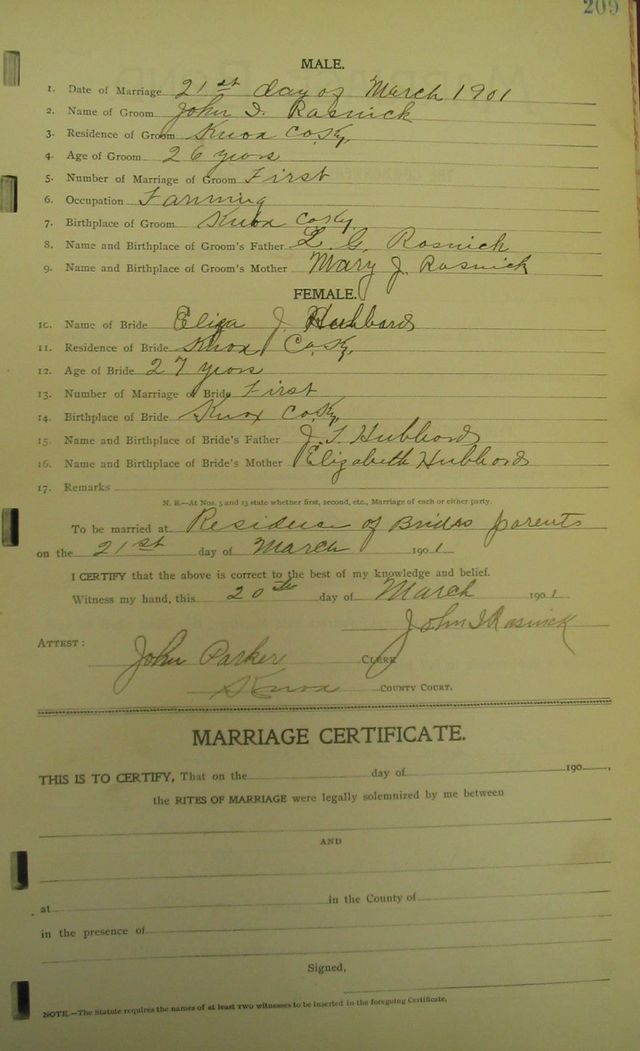 209
MALE.
1. Date of Marriage 21st day of March 1901
2. Name of Groom John I. Rasnick
3. Residence of Groom Knox Co Ky.
4. Age of Groom 26 years
5. Number of Marriage of Groom First
6. Occupation Farming
7. Birthplace of Groom Knox Co Ky
8. Name and Birthplace of Groom's Father L. G. Rasnick
9. Name and Birthplace of Groom's Mother Mary J. Rasnick
FEMALE.
10. Name of Bride Eliza J Hubbard
11. Residence of Bride Knox Co. Ky.
12. Age of Bride 27 years
13. Number of Marriage of Bride First
14. Birthplace of Bride Knox Co Ky
15. Name and Birthplace of Bride's Father Hubbard
16. Name and Birthplace of Bride's Mother Elizabeth Hubbard
17. Remarks
N. B.—At Nos. 5 and 13 state whether first, second, etc., Marriage of each or either party.
To be married at Residence of Brides parents
on the 21st day of March 1901
I CERTIFY that the above is correct to the best of my knowledge and belief.
Witness my hand, this 20th day of March 1901
John I Rasnick
ATTEST:
John Parker CLERK
Knox COUNTY COURT.
MARRIAGE CERTIFICATE.
THIS IS TO CERTIFY, That on the day of 190 ,
the RITES OF MARRIAGE were legally solemnized by me between
AND
at in the County of
in the presence of
Signed,
NOTE.—The Statute requires the names of at least two witnesses to be inserted in the foregoing Certificate.